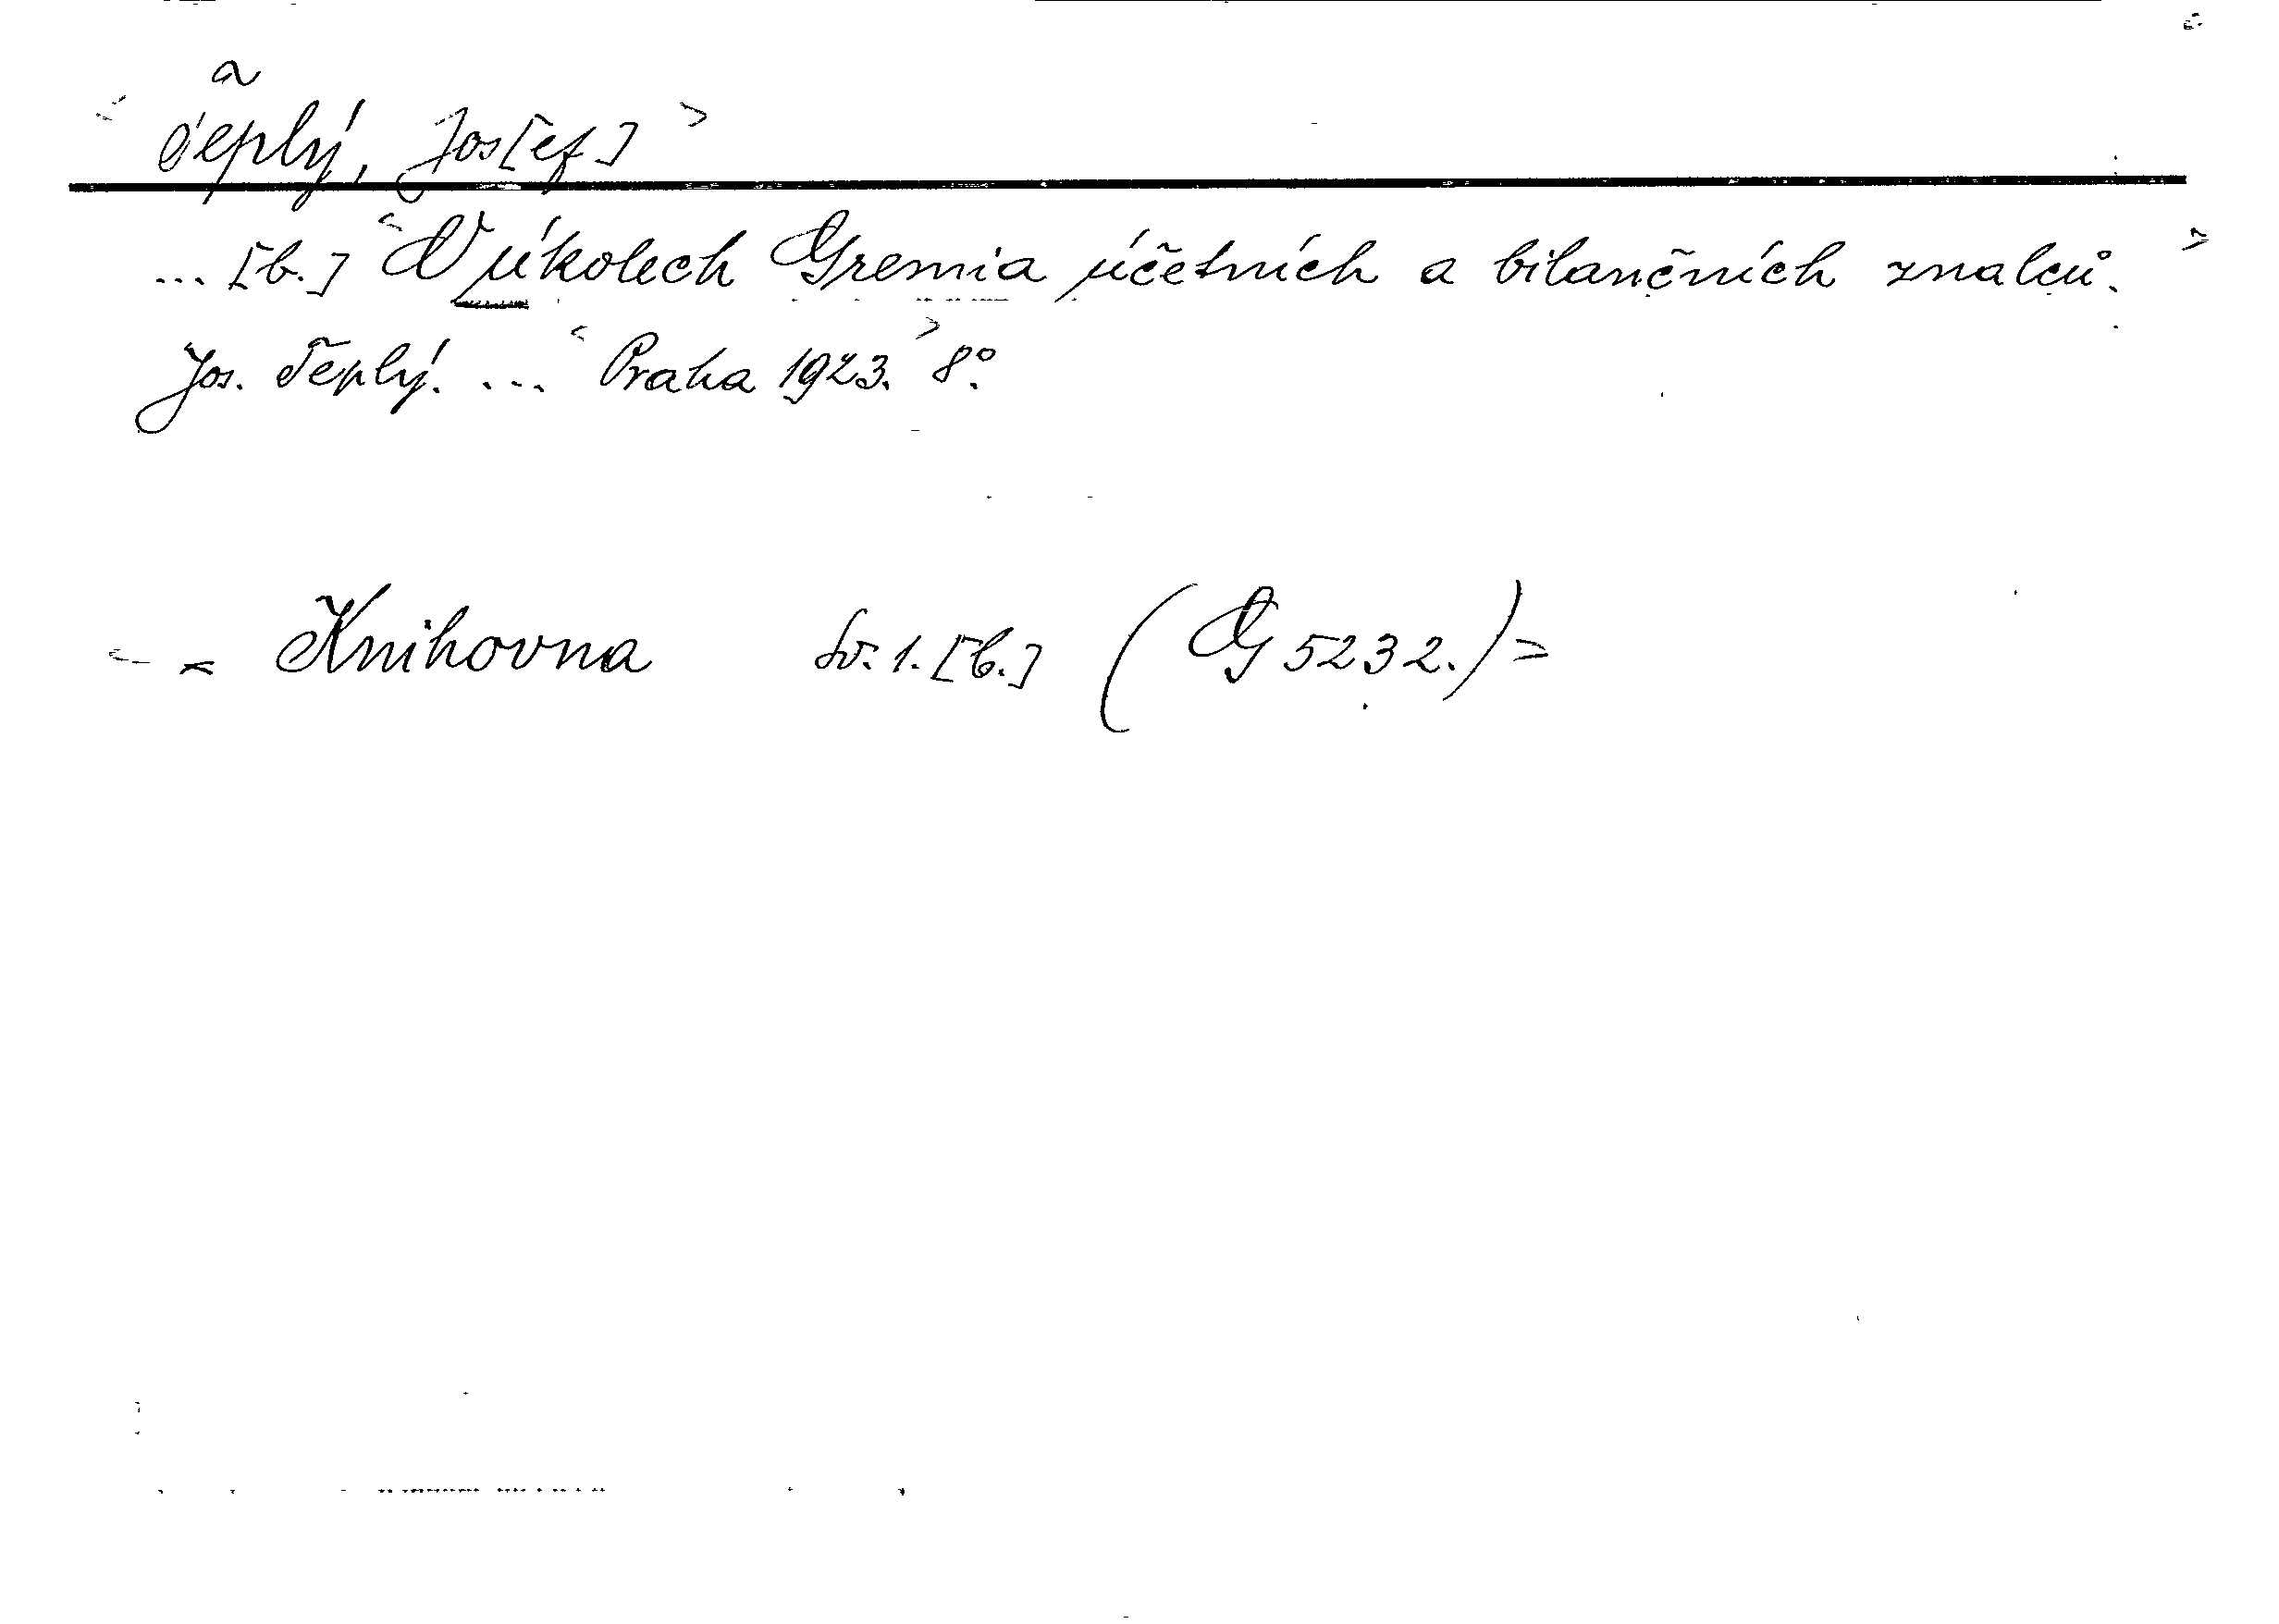 Teplý, Jos[ef]
... [b.] O úkolech Gremia účetních a bilančních znalců.
Jos. Teplý. ... Praha 1923. 8°.
= Knihovna Sv. 1. [b.] (G 5232.) =